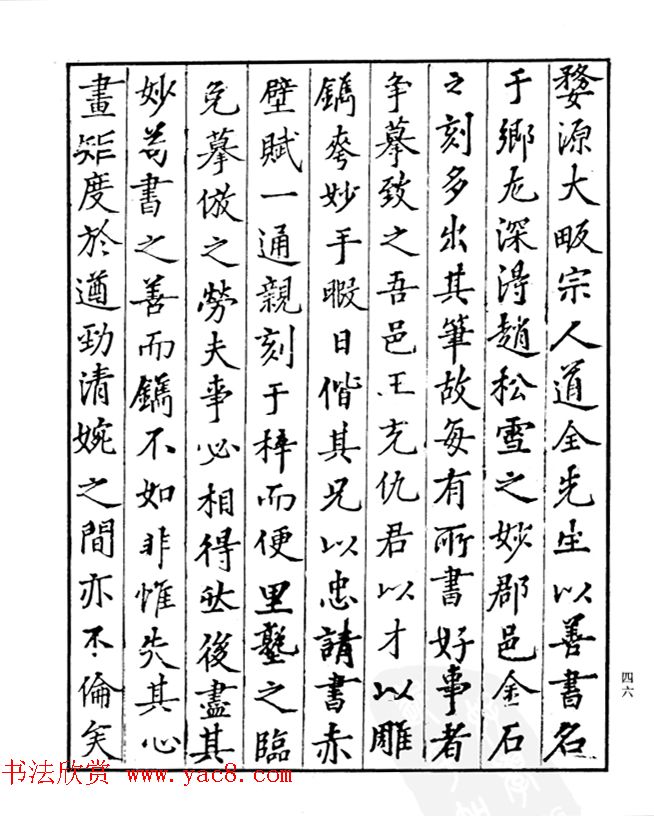 婺源大畈宗人道全先生以善書名
于鄉尤深淂趙松雪之妙郡邑金石
之刻多出其筆故每有所書好事者
争摹致之吾邑王充仇君以才以雕
鐫妙手暇日偕其兄以忠請書赤
壁賦一通親刻于梓而便里塾之臨
免摹倣之勞夫事必相得然後盡其
妙若書之善而鐫不如非惟失其心
畫矩度於遒勁清婉之間亦不倫矣
四六
书法欣赏 www.yac8.com